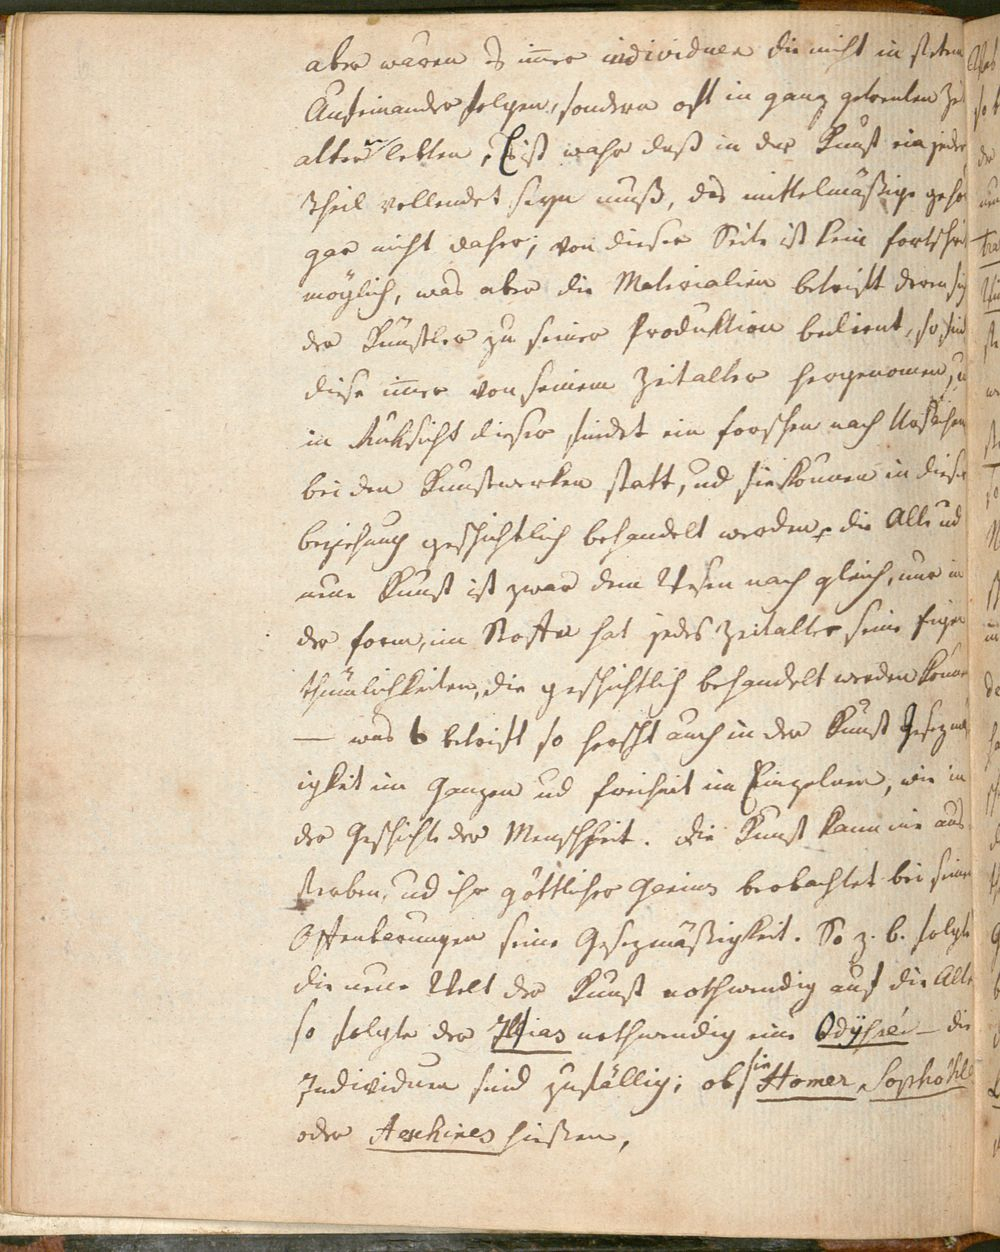 aber waren es im̄er individuen die nicht in stetem
Aufeinander folgen, sondern oft in ganz getrenten Ze
altern lebten, Es ist wahr daß in der Kunst ein jeder
Theil vollendet seyn muß, das mittelmäßige gehö
gar nicht daher; von dieser Seite ist kein fortschrit
möglich, was aber die Materialien betrift deren sich
der Künstler zu seiner Produktion bedient, so sind
diese im̄er von seinem Zeitalter hergenomen, u
in Rüksicht dieser findet ein forschen nach Ursachen
bei den Kunstwerken statt, ud sie können in dieser
beziehung geschichtlich behandelt werden, die Alte ud
neue Kunst ist zwar dem Wesen nach gleich, nur in
der form, im Stoffe hat jedes Zeitalter seine Eigen
thümlichkeiten, die geschichtlich behandelt werden könne
— was b betrift so herscht auch in der Kunst Gesezmäß
igkeit im Ganzen ud freiheit im Einzelnen, wie in
der Geschichte der Menschheit. Die Kunst kann nie aus
sterben, ud ihr göttlicher Genius beobachtet bei seinen
Offenbarungen seine Gesezmäßigkeit. So z. b. folgte
die neue Welt der Kunst nothwendig auf die Alte
so folgte der Ilias nothwendig eine Odÿseé — die
Individuen sind zufällig; ob sie Homer, Sophokle
oder Aeschines hießen,